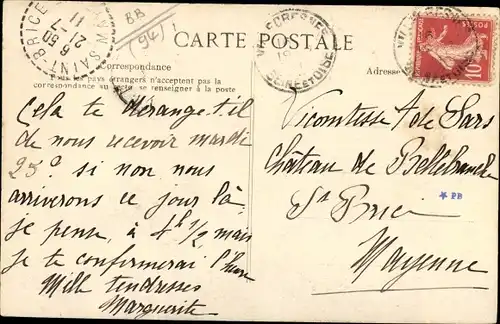 SAINT BRICE
6 50
21
7
11
BB
(94)
CARTE POSTALE
Correspondance
pays étrangers n'acceptent pas la
correspondance au se renseigner à la poste
Adresse
SEINE ET OISE
10
Cela te dérange-t-il
de nous recevoir mardi
25? si non nous
arriverons ce jour là,
je pense, à 4h 1/2 mais
je te confirmerai l'heure
Mille tendresses
Marguerite
Vicomtesse de Sars
Château de Bellebranche
St Brice
Mayenne
* PB